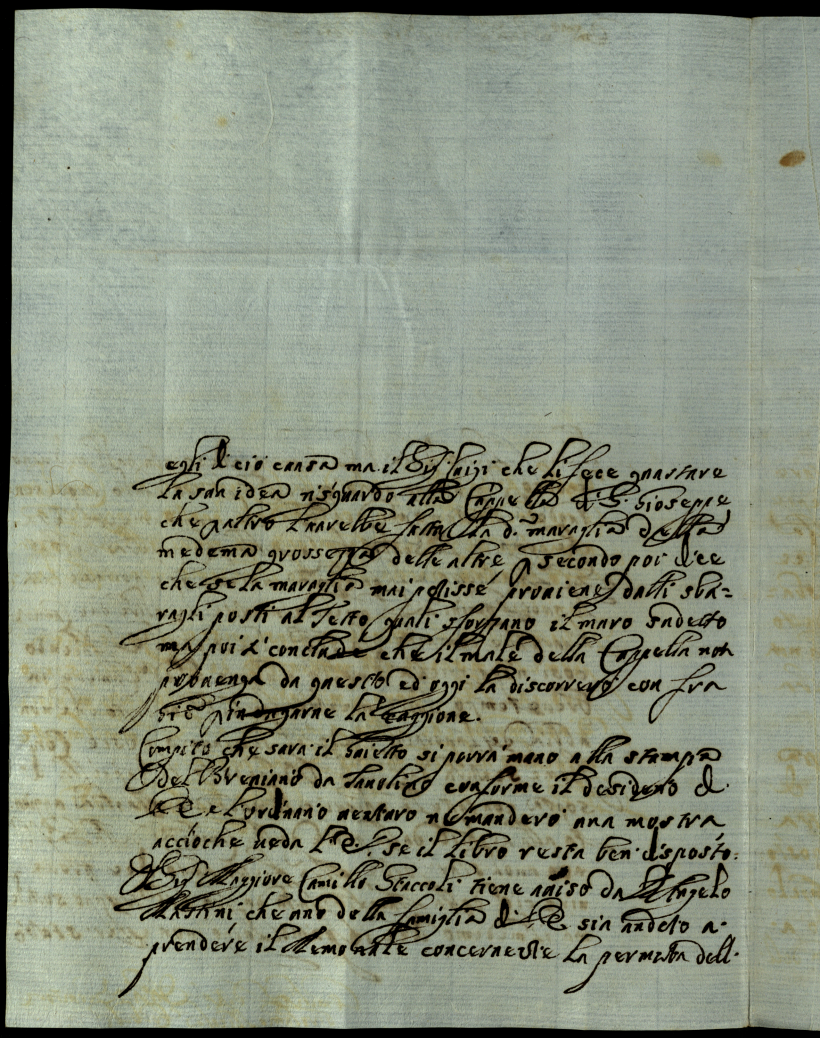 egli di ciò causa ma il Sig. Luigi che li fece guastare
la sua idea risguardo alla Cappella di S. Gioseppe
che p altro l'havrebbe fatta la d.ª maraglia della
medema grossezza delle altre, p secondo poi dice
che se la maraglia mai patisse, proviene dalli sba=
ragli posti al Tetto quali sforzano il muro sudetto
ma poi si conclude che il male della Cappella non
provenga da questo ed oggi la discorrerò con fra
p indagarne la caggione.
Compito che sarà il si porrà mano alla stampa
del Breviario da Tavolino conforme il desiderio di
V.E. e l'ordinario venturo ne manderò una mostra
acciòche veda V.E. se il libro resta ben disposto.
Il Sig. Maggiore Camillo Staccoli tiene aviso da Angelo
Martini che uno della famiglia di V.E. sia andato a
prendere il Memoriale concernente la permuta dell'